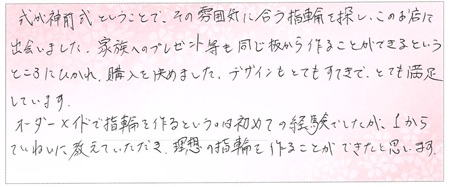 式が神前式ということで、その雰囲気に合う指輪を探し、このお店で
出会いました。家族へのプレゼント等も同じ板から作ることができるという
ところにひかれ、購入を決めました。デザインもとてもすてきで、とても満足
しています。
オーダーメイドで指輪を作るというのは初めての経験でしたが、1から
ていねいに教えていただき、理想の指輪を作ることができたと思います。